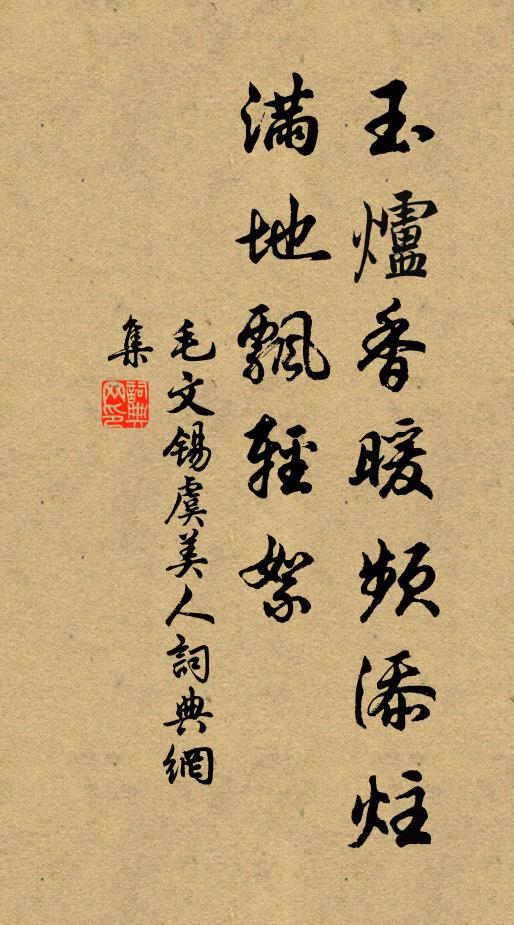 玉爐香暖頻添炷
滿地飄輕絮
毛文錫虞美人詞典網
集
詞典
网印